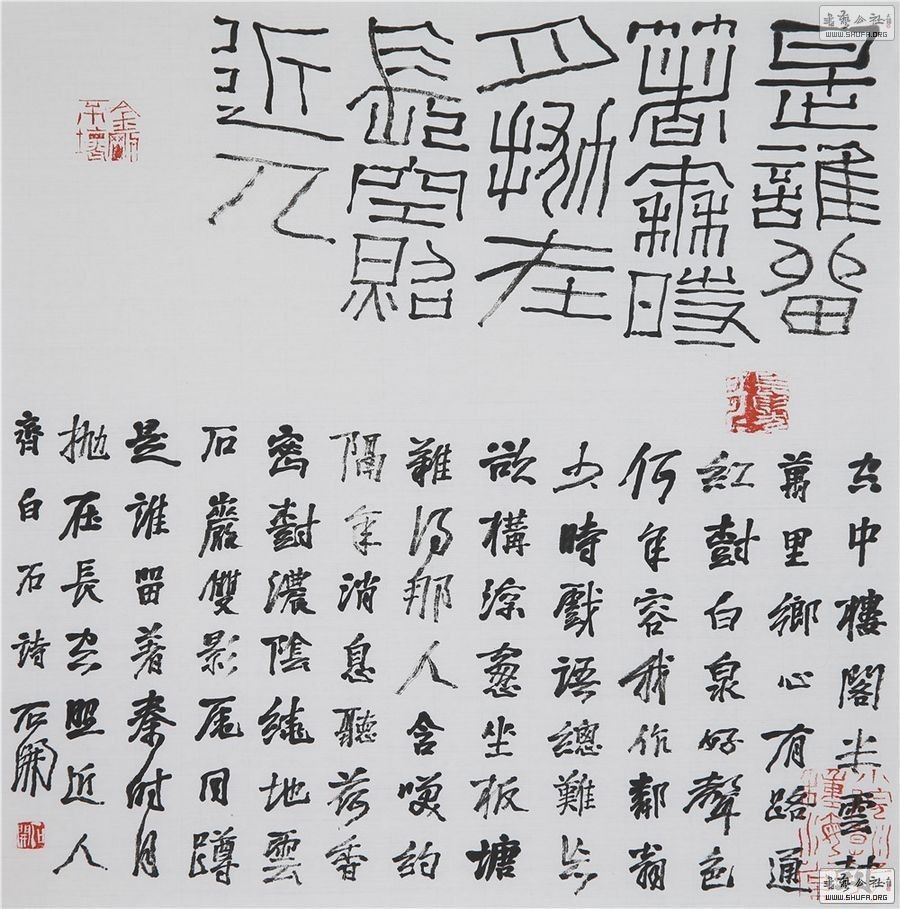 是誰留
著秦時
月拋在
長空照
近人
金剛不壞
空中樓閣半雲封
萬里鄉心有路通
紅樹白泉好聲色
何年容我作鄰翁
少時戲語總難忘
欲構窗坐板塘
難得那人含笑約
隔年消息聽荷香
密樹濃陰繞地雲
石巖雙影尾同蹲
是誰留著秦時月
拋在長空照近人
齊白石詩 石開
石開
書藝公社
WWW.SHUFA.ORG
書藝公社
WWW.SHUFA.ORG